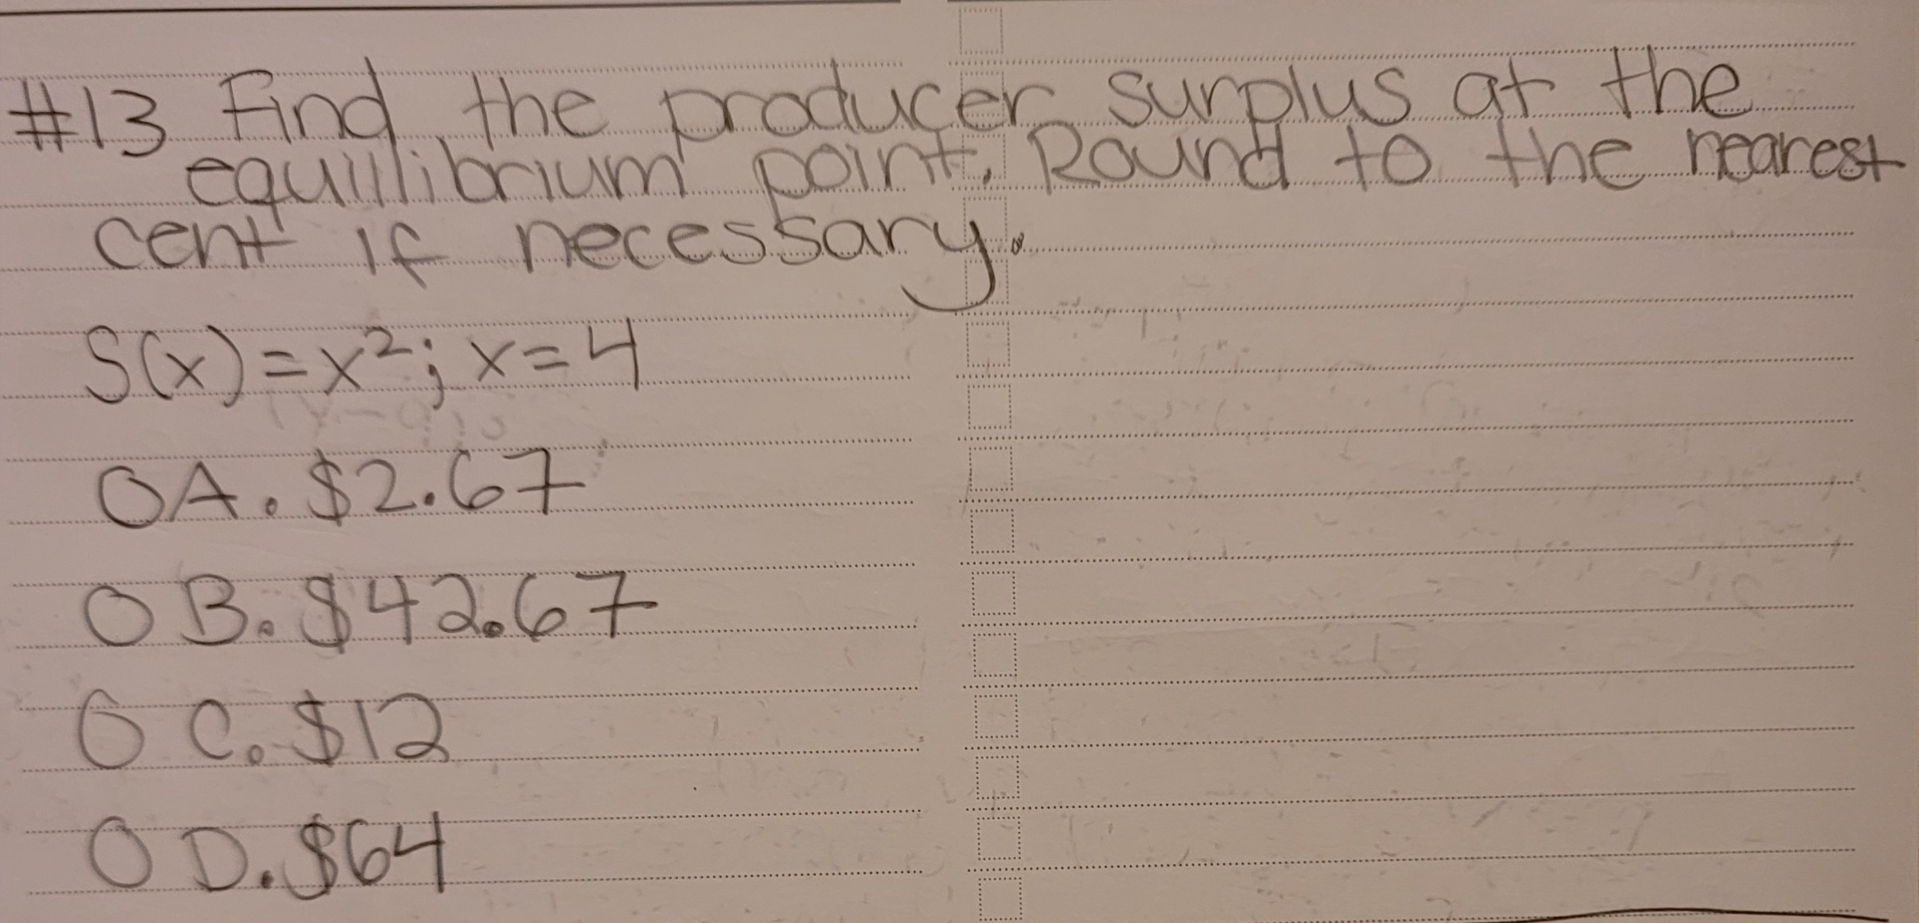 #13 Find the producer surplus at the
equilibrium point. Round to the nearest
cent if necessary.
S(x)=x²; x=4
O A. $2.67
O B. $42.67
O C. $12
O D. $64